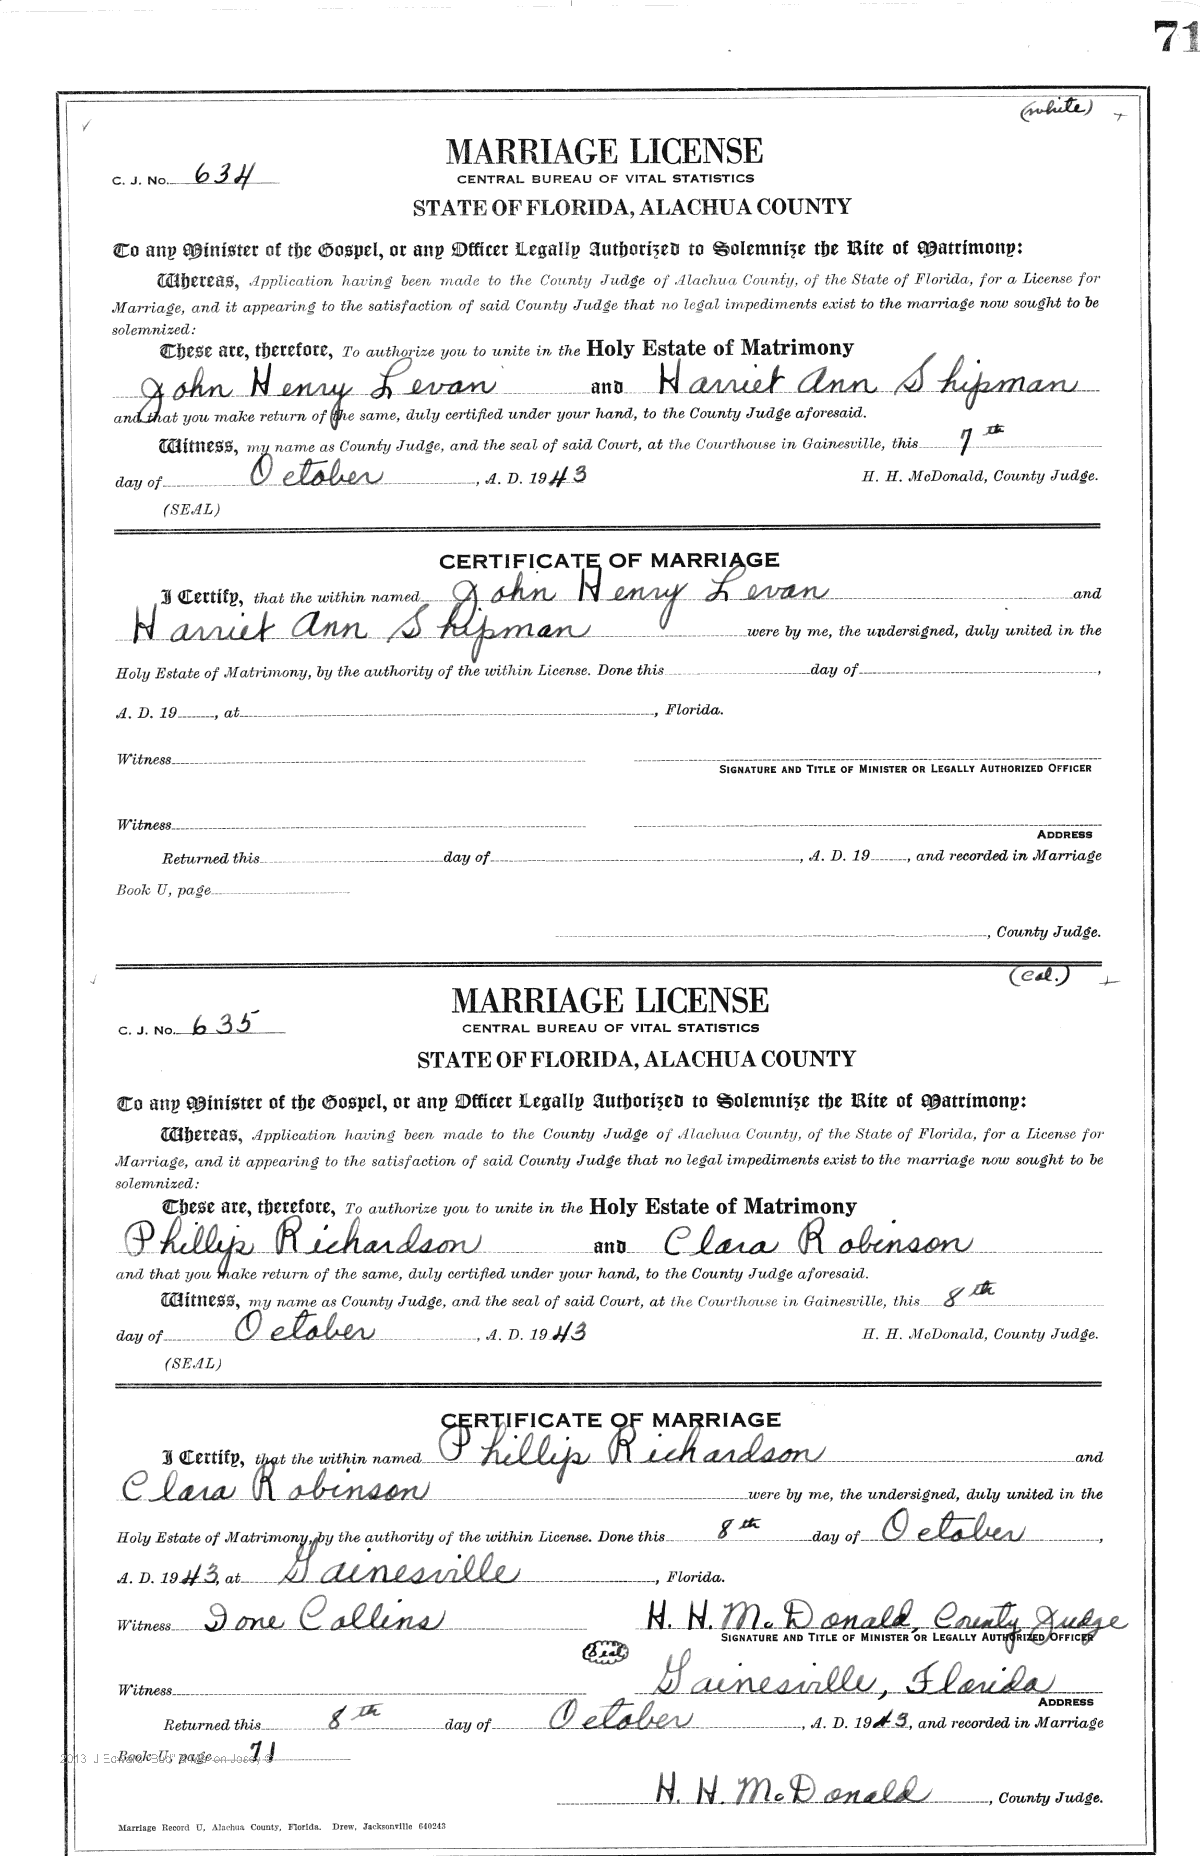 71
(white)
MARRIAGE LICENSE
C. J. No. 634
CENTRAL BUREAU OF VITAL STATISTICS
STATE OF FLORIDA, ALACHUA COUNTY
To any Minister of the Gospel, or any Officer Legally Authorized to Solemnize the Rite of Matrimony:
Whereas, Application having been made to the County Judge of Alachua County, of the State of Florida, for a License for
Marriage, and it appearing to the satisfaction of said County Judge that no legal impediments exist to the marriage now sought to be
solemnized:
These are, therefore, To authorize you to unite in the Holy Estate of Matrimony
John Henry Levan and Harriet Ann Shipman
and that you make return of the same, duly certified under your hand, to the County Judge aforesaid.
Witness, my name as County Judge, and the seal of said Court, at the Courthouse in Gainesville, this 7th
day of October, A. D. 1943 H. H. McDonald, County Judge.
(SEAL)
CERTIFICATE OF MARRIAGE
I Certify, that the within named John Henry Levan and
Harriet Ann Shipman were by me, the undersigned, duly united in the
Holy Estate of Matrimony, by the authority of the within License. Done this day of ,
A. D. 19 , at , Florida.
Witness
SIGNATURE AND TITLE OF MINISTER OR LEGALLY AUTHORIZED OFFICER
Witness
ADDRESS
Returned this day of , A. D. 19 , and recorded in Marriage
Book U, page
, County Judge.
(Col.)
MARRIAGE LICENSE
C. J. No. 635
CENTRAL BUREAU OF VITAL STATISTICS
STATE OF FLORIDA, ALACHUA COUNTY
To any Minister of the Gospel, or any Officer Legally Authorized to Solemnize the Rite of Matrimony:
Whereas, Application having been made to the County Judge of Alachua County, of the State of Florida, for a License for
Marriage, and it appearing to the satisfaction of said County Judge that no legal impediments exist to the marriage now sought to be
solemnized:
These are, therefore, To authorize you to unite in the Holy Estate of Matrimony
Phillip Richardson and Clara Robinson
and that you make return of the same, duly certified under your hand, to the County Judge aforesaid.
Witness, my name as County Judge, and the seal of said Court, at the Courthouse in Gainesville, this 8th
day of October, A. D. 1943 H. H. McDonald, County Judge.
(SEAL)
CERTIFICATE OF MARRIAGE
I Certify, that the within named Phillip Richardson and
Clara Robinson were by me, the undersigned, duly united in the
Holy Estate of Matrimony, by the authority of the within License. Done this 8th day of October,
A. D. 1943, at Gainesville, Florida.
Witness Ione Collins H. H. McDonald, County Judge
SIGNATURE AND TITLE OF MINISTER OR LEGALLY AUTHORIZED OFFICER
(Seal)
Witness Gainesville, Florida
ADDRESS
Returned this 8th day of October, A. D. 1943, and recorded in Marriage
Book U, page 71
2013 J Edward
H. H. McDonald, County Judge.
Marriage Record U, Alachua County, Florida. Drew, Jacksonville 640243